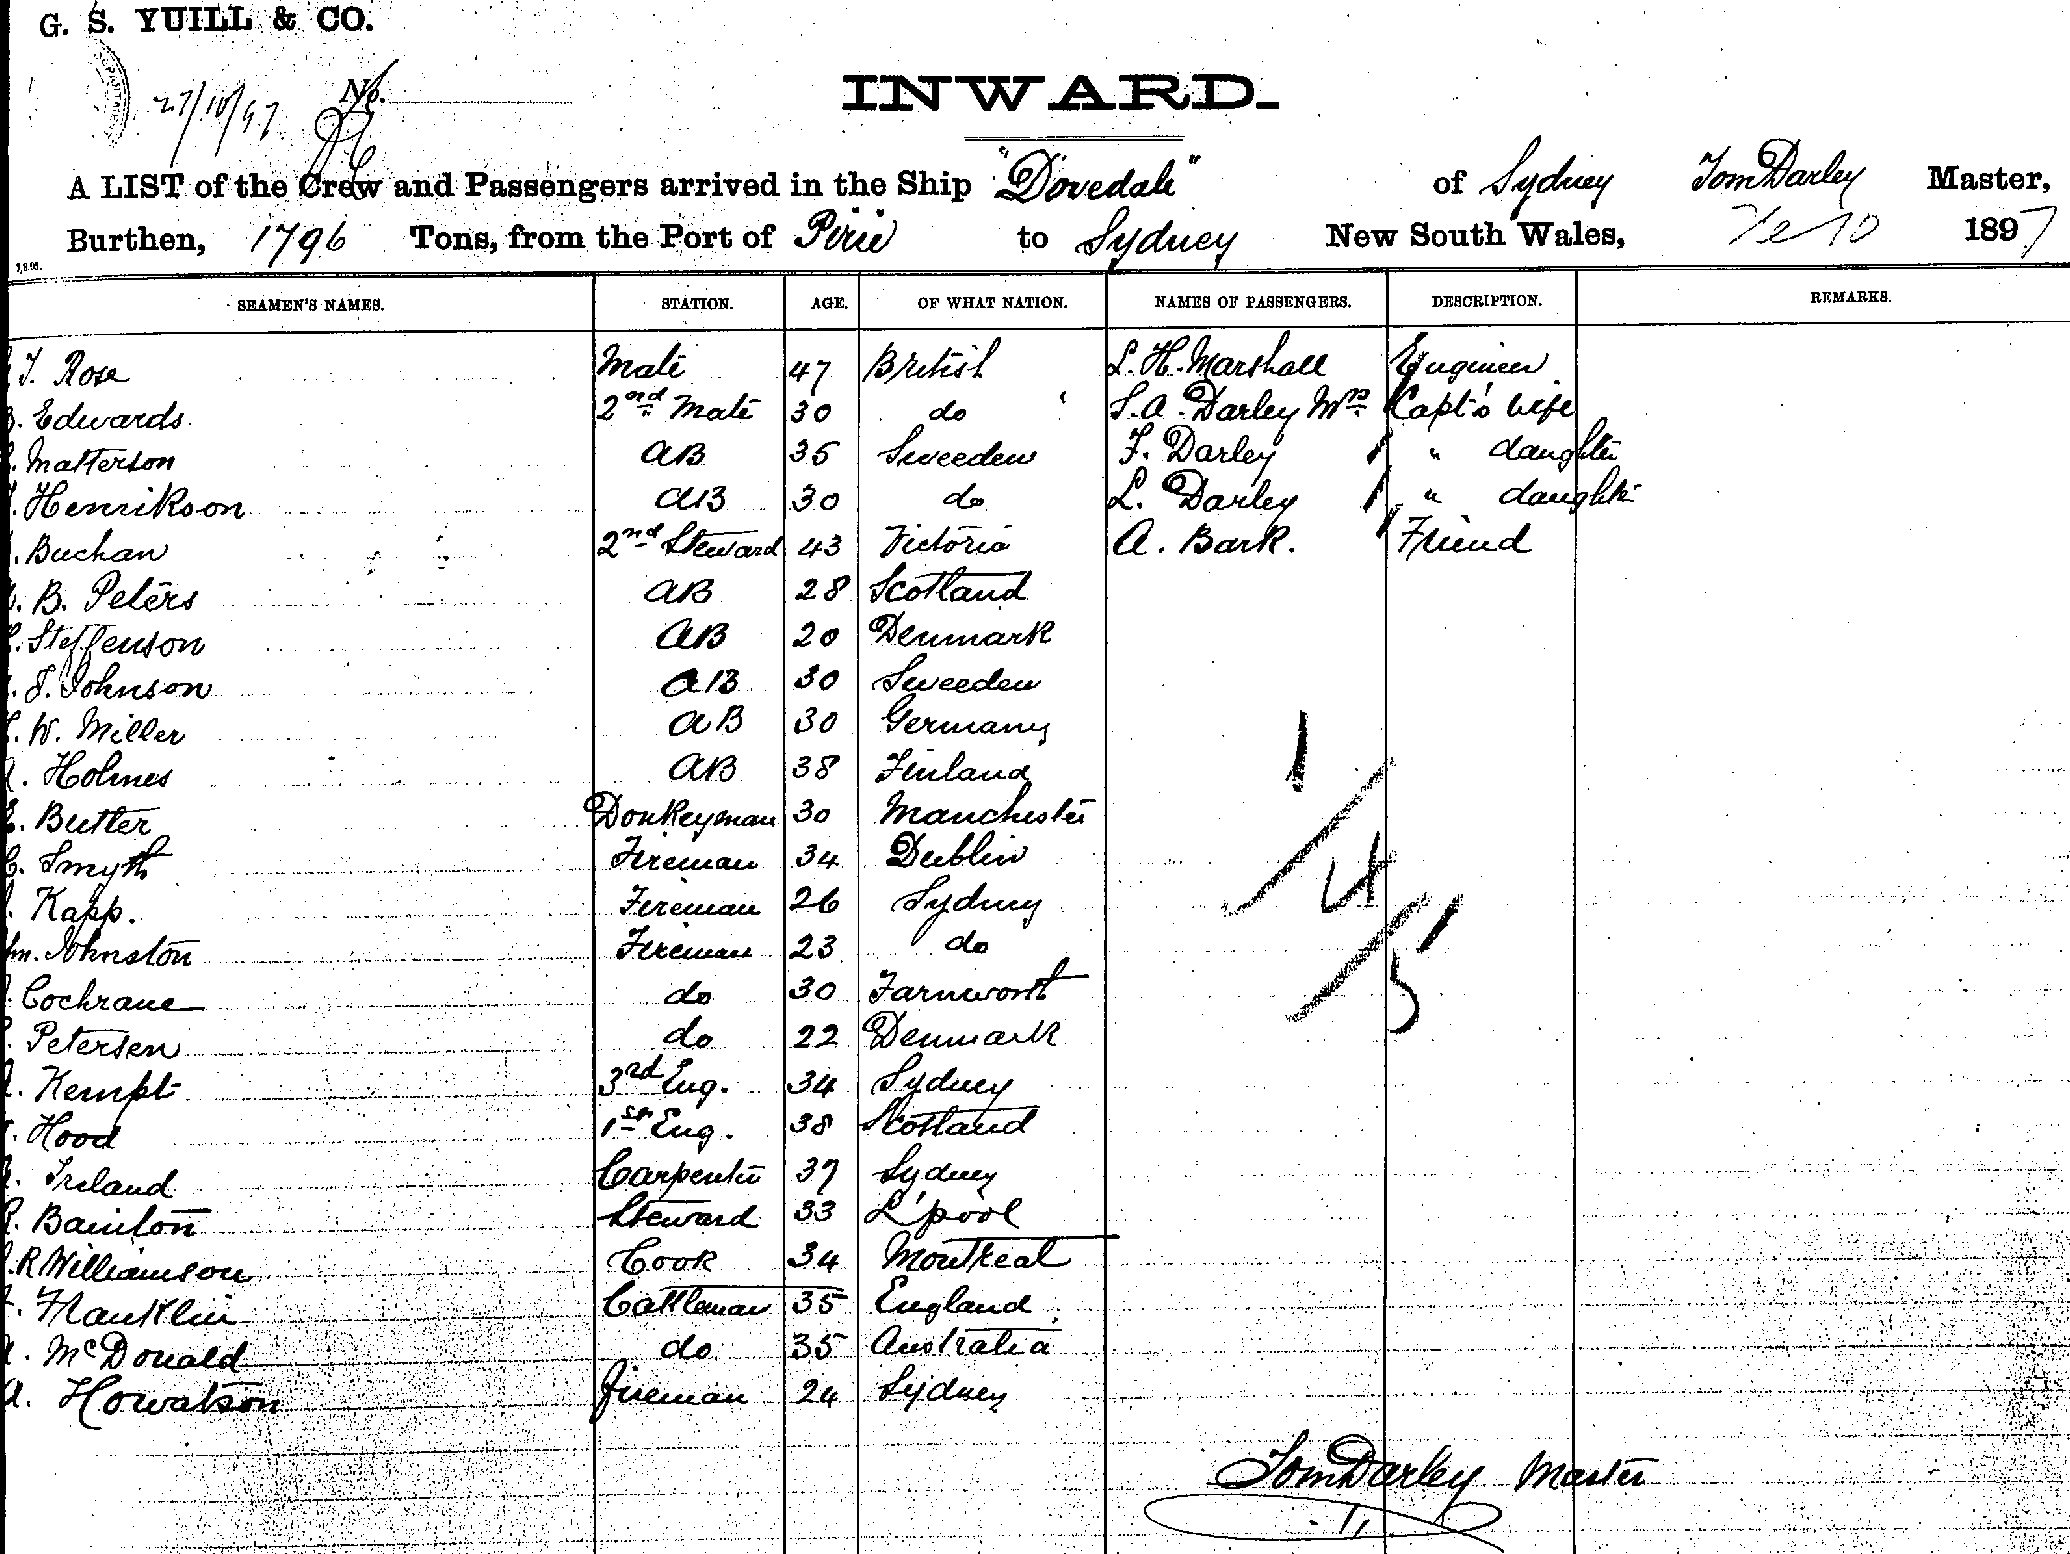 G. S. YUILL & CO.
27/10/97 No.
INWARD.
A LIST of the Crew and Passengers arrived in the Ship "Dovedale" of Sydney Tom Darley Master,
Burthen, 1796 Tons, from the Port of Pirie to Sydney New South Wales, 1897
SEAMEN'S NAMES. STATION. AGE. OF WHAT NATION. NAMES OF PASSENGERS. DESCRIPTION. REMARKS.
T. Rose Mate 47 British L. H. Marshall Engineer
Edwards 2nd Mate 30 do S. A. Darley Mrs Capt's wife
Matterson AB 35 Sweeden F. Darley " daughter
Henrikson AB 30 do L. Darley " daughter
Buchan 2nd Steward 43 Victoria A. Bark. Friend
B. Peters AB 28 Scotland
Steffenson AB 20 Denmark
J. Johnson AB 30 Sweeden
W. Miller AB 30 Germany
Holmes AB 38 Finland
Butler Donkeyman 30 Manchester
Smyth Fireman 34 Dublin
Kapp. Fireman 26 Sydney
Johnston Fireman 23 do
Cochrane do 30 Farnworth
Petersen do 22 Denmark
Kempt 3rd Eng. 34 Sydney
Hood 1st Eng. 38 Scotland
Ireland Carpenter 37 Sydney
Bainton Steward 33 L'pool
R Williamson Cook 34 Montreal
Franklin Cattleman 35 England
McDonald do 35 Australia
A. Howatson Fireman 24 Sydney
1
24
5
Tom Darley Master